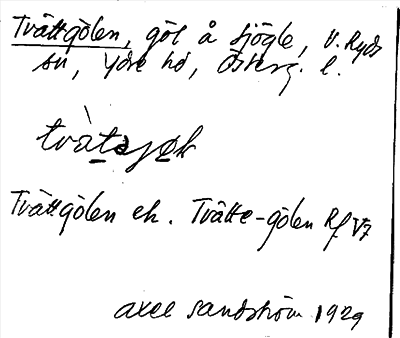 Tvättgölen, göl å Sjögle, V. Ryds
sn, Ydre hd, Österg. l.
Tvättgölen ek. Tvätte-gölen Rf V7
Axel Sandström 1929